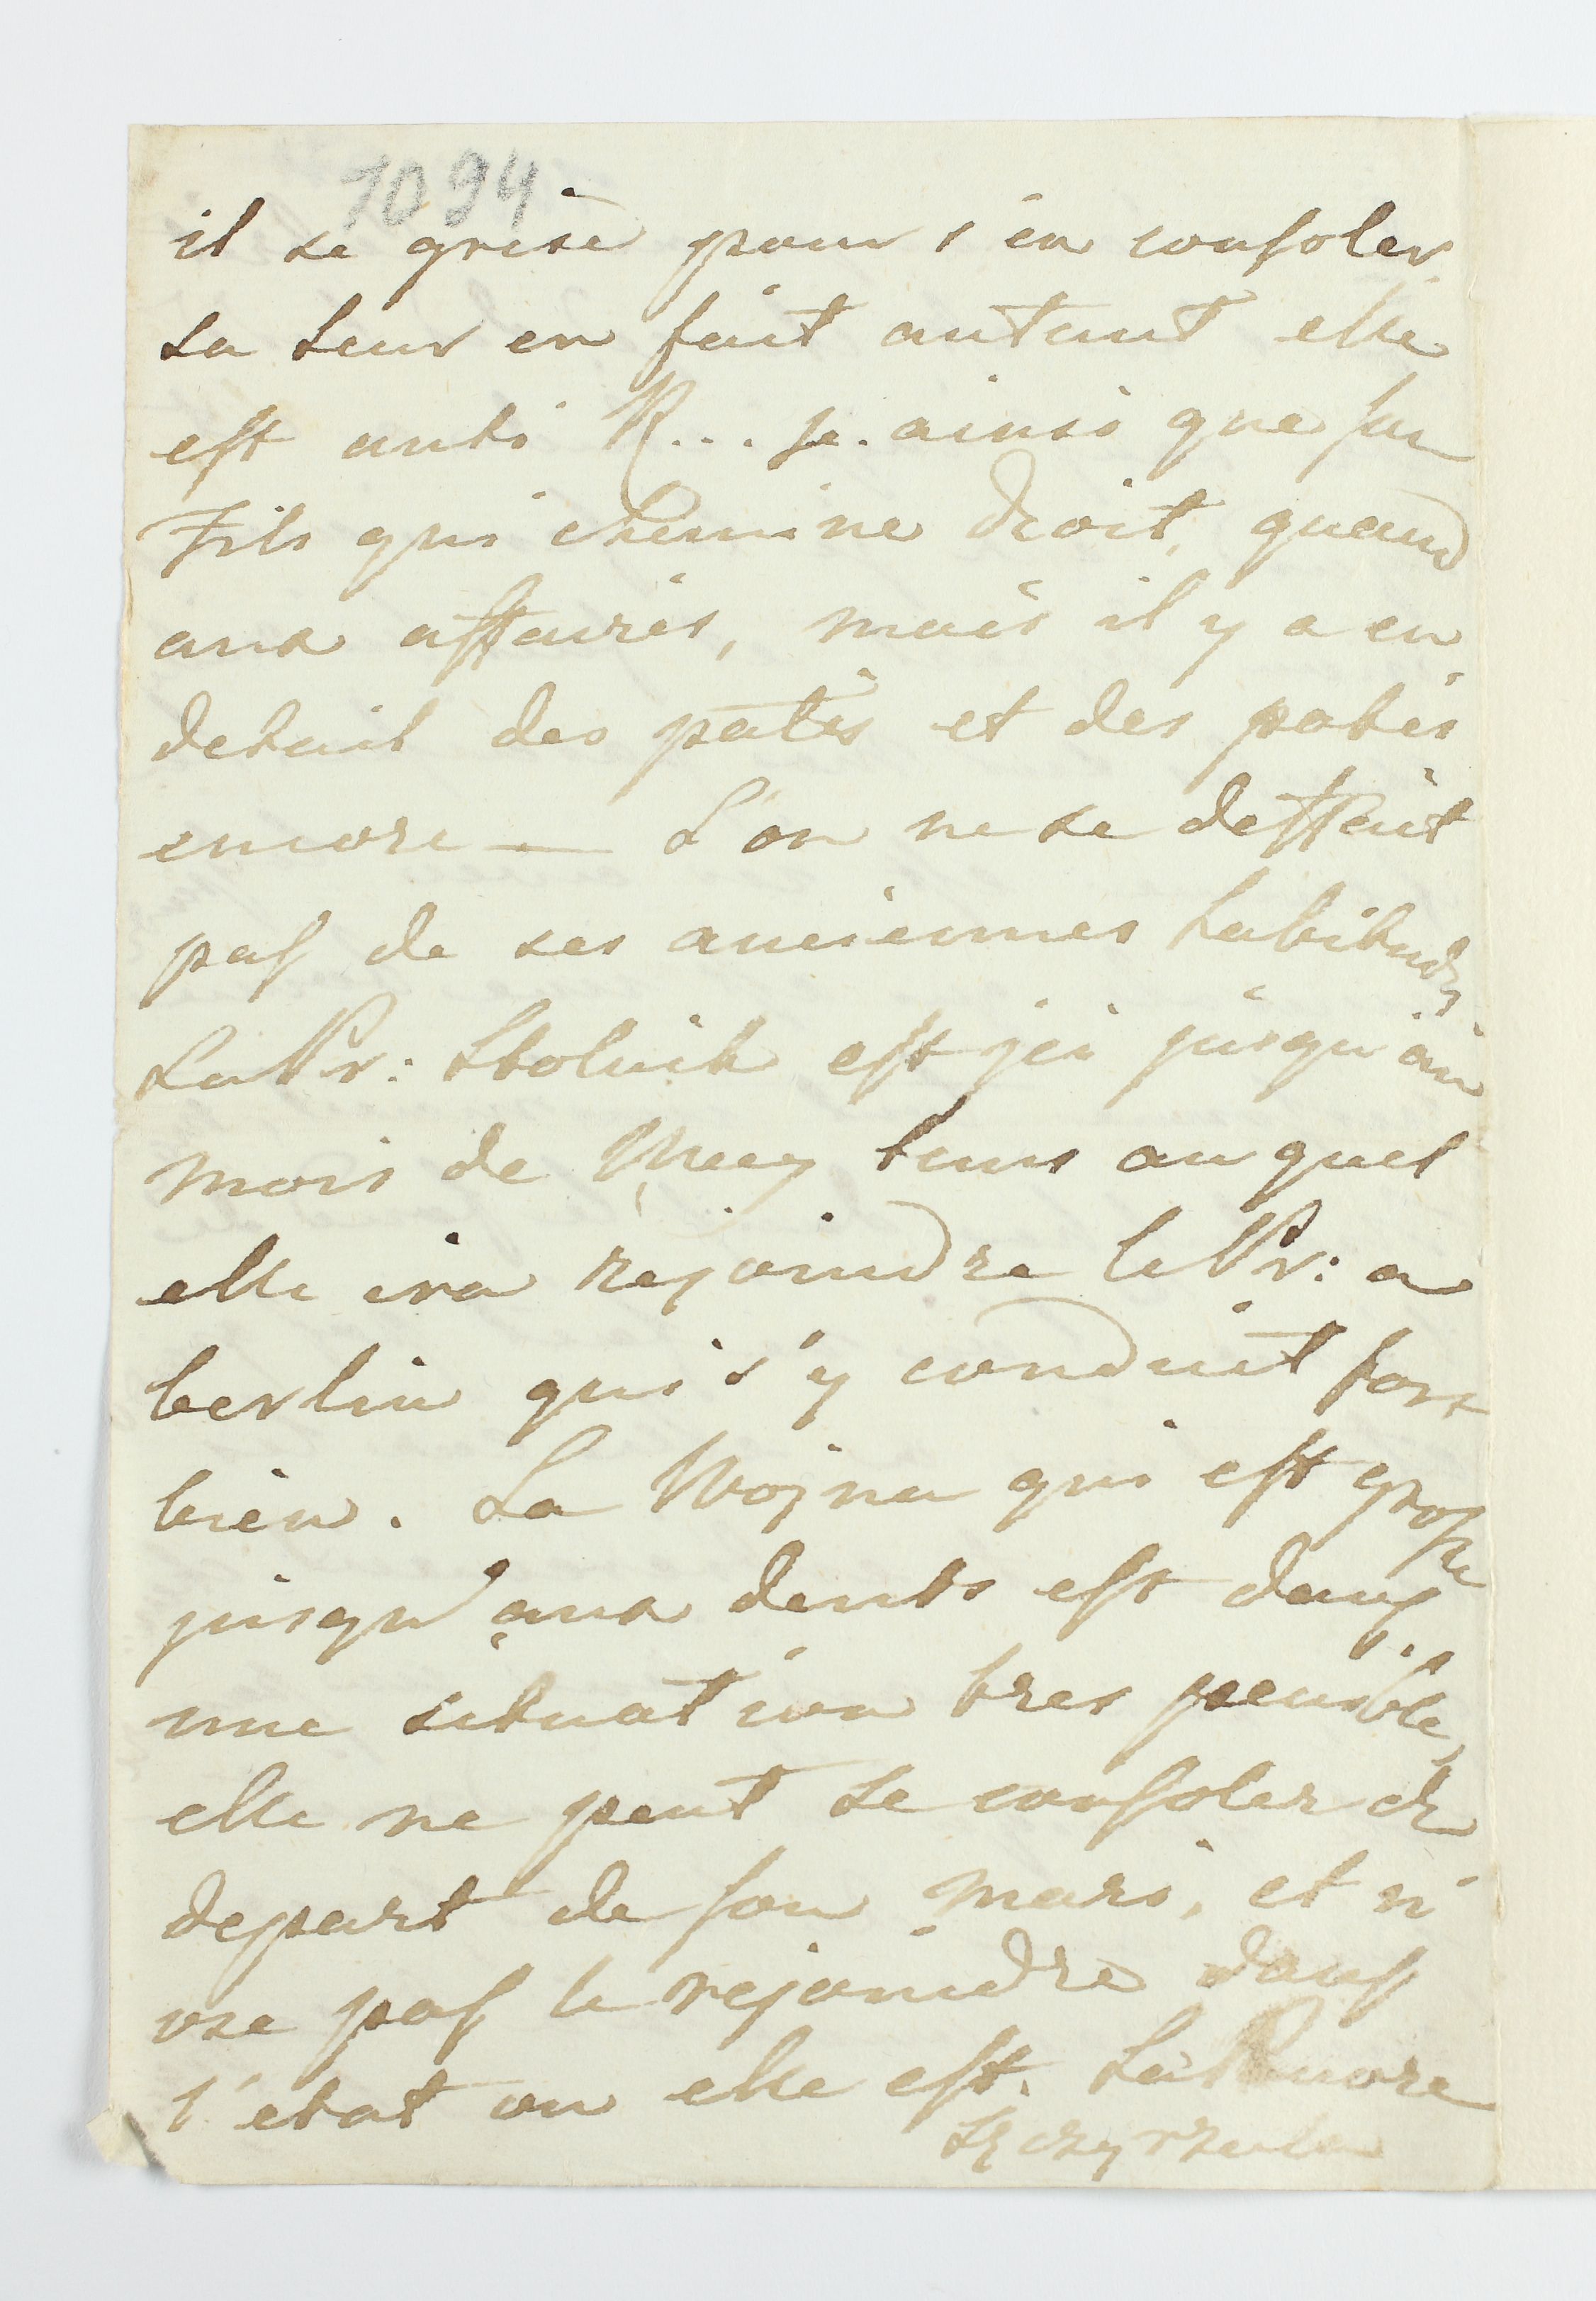 1094
il se grise pour s'en consoler
sa seur en fait autant elle
est anti R... se. ainsi que son
Fils qui chemine droit, quand
aux affaires, mais il y a en
detail des patés et des patés
encore — L'on ne se deffait
pas de ses anciennes habitudes
La Pr: Stolnik est ici jusqu'au
mois de May tems au quel
elle ira rejoindre le Pr: a
berlin qui s'y conduit fort
bien. La Wojna qui est grosse
jusqu'aux dents est dans
une situation tres penible,
elle ne peut se consoler du
depart de son mari, et n'
ose pas le rejoindre dans
l'etat ou elle est. La